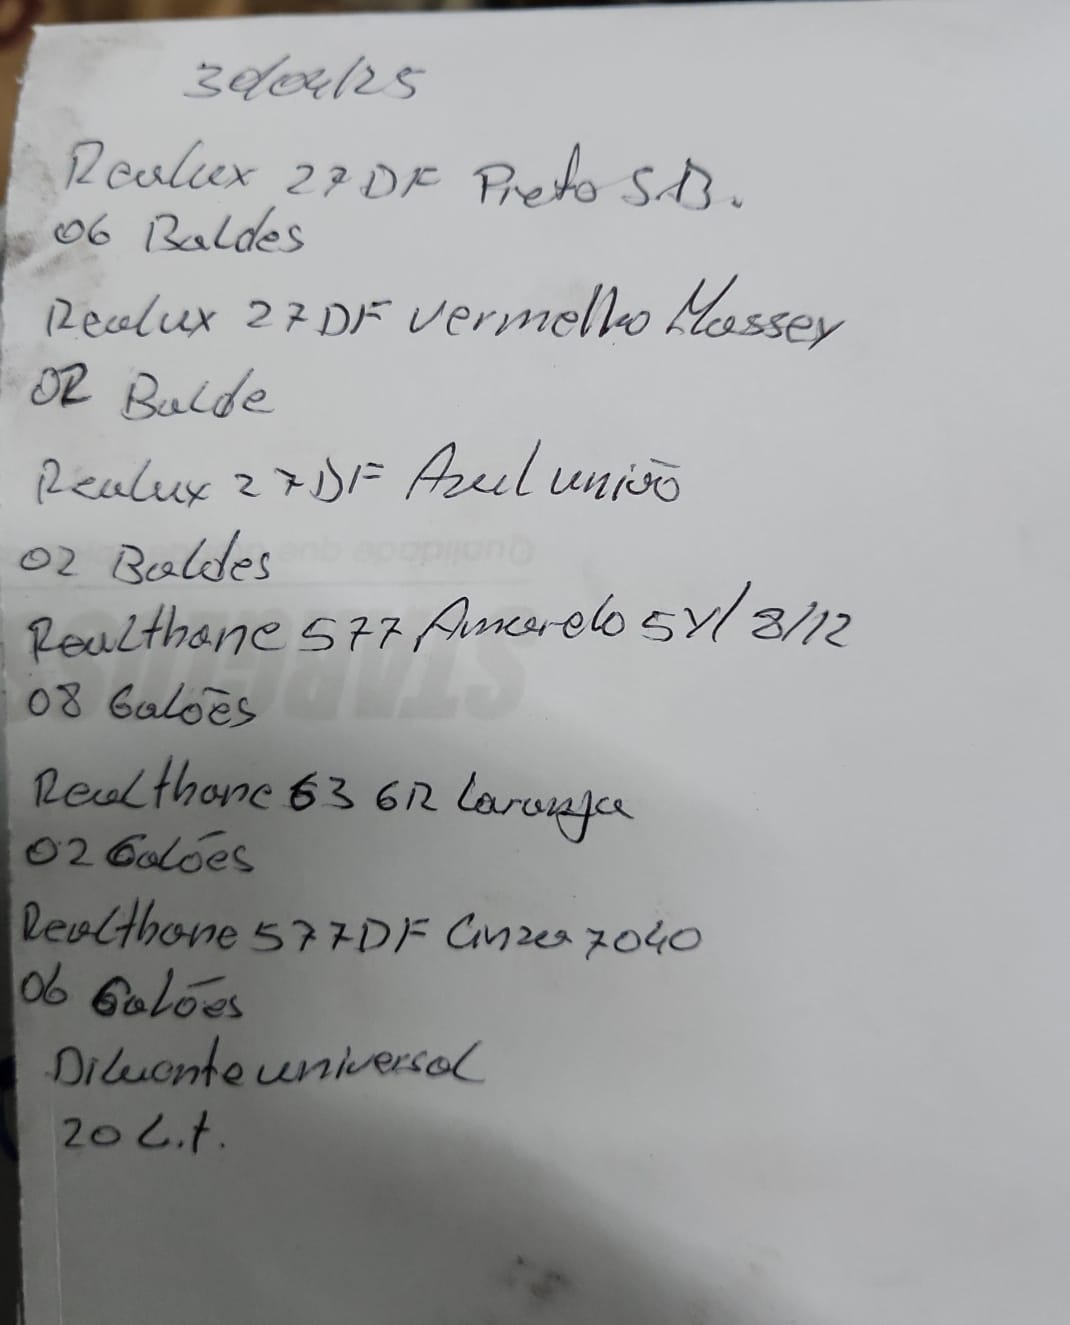 30/04/25
Realux 27DF Preto S.B.
06 Baldes
Realux 27DF vermelho Massey
02 Balde
Realux 27DF Azul união
02 Baldes
Realthane 577 Amarelo 5Y/8/12
08 Galões
Realthane 636R Laranja
02 Galões
Realthane 577DF Cinza 7040
06 Galões
Diluente universal
20 L.t.